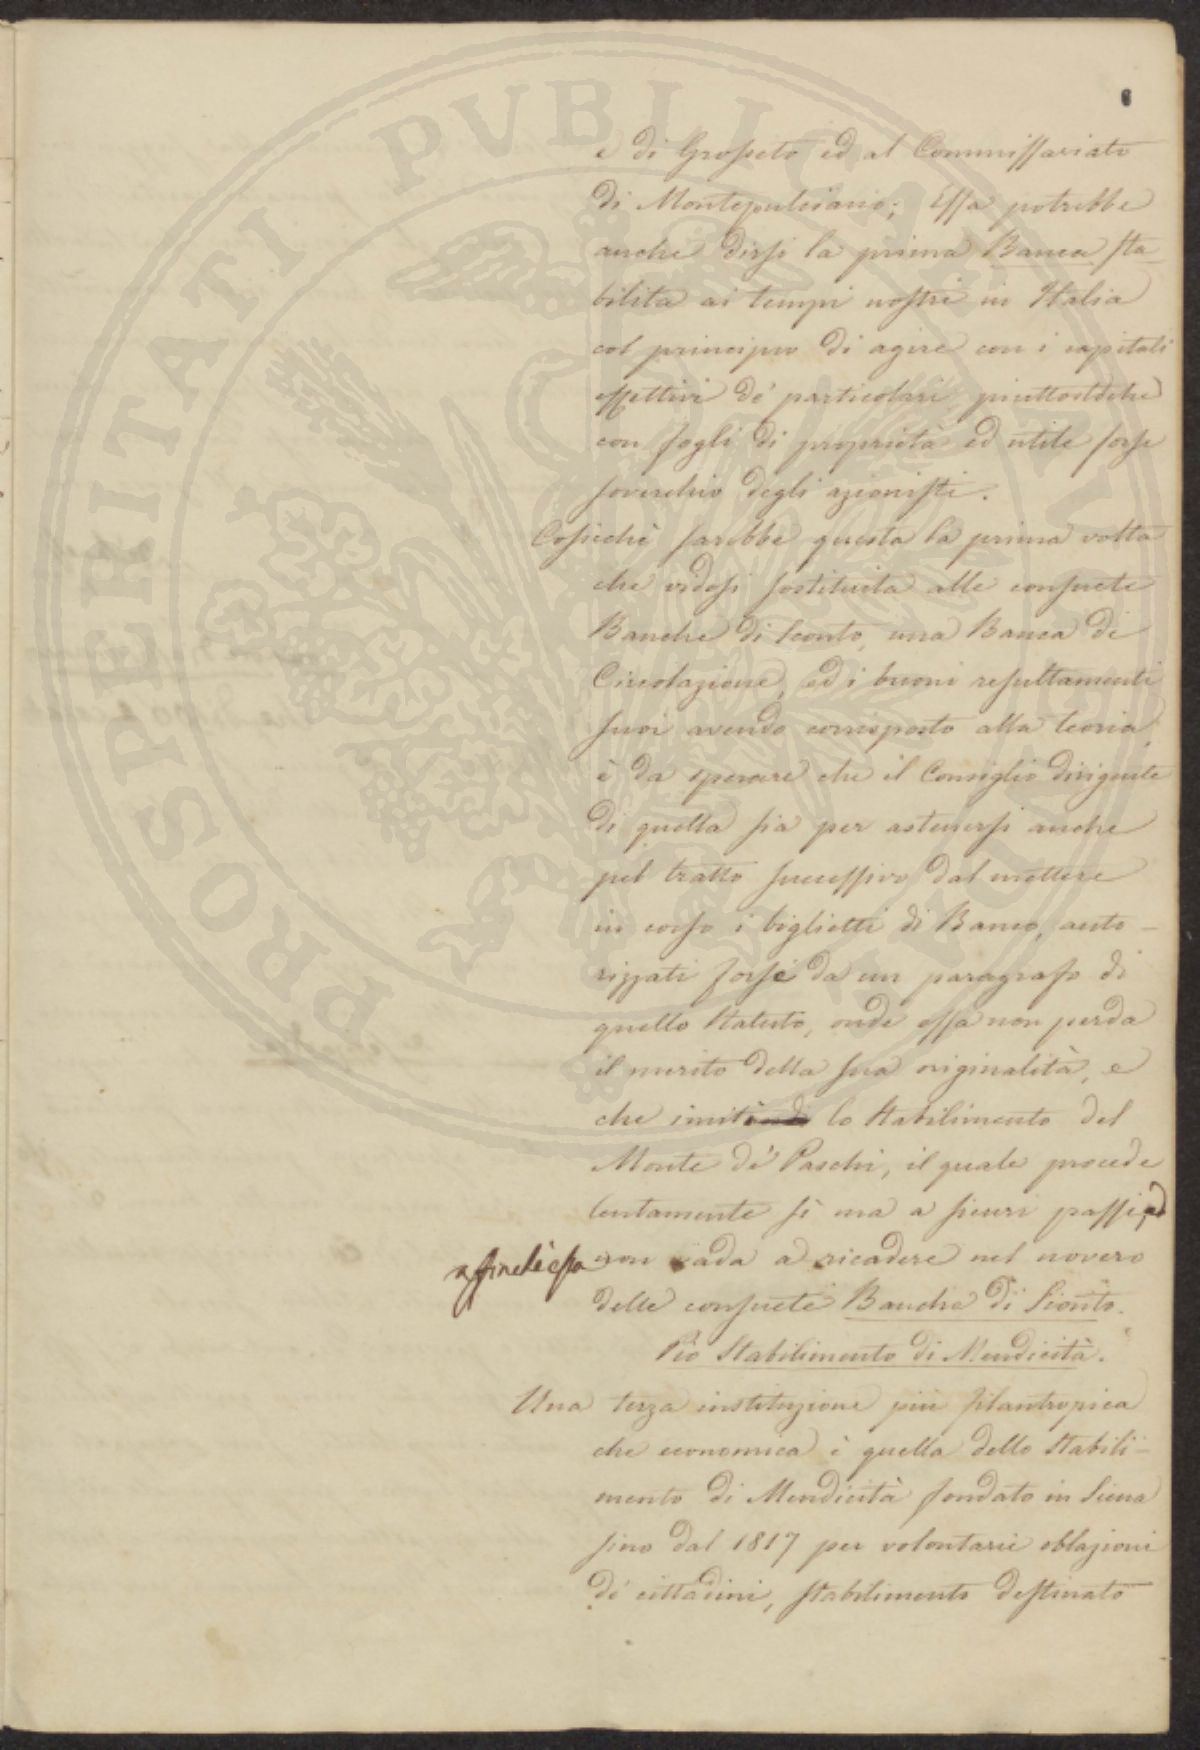 e di Grosseto ed al Commissariato
di Montepulciano; Essa potrebbe
anche dirsi la prima Banca sta-
bilita ai tempi nostri in Italia
col principio di agire con i capitali
effettivi de' particolari piuttostoche
con fogli di proprietà ed utile forse
soverchio degli azionisti.
Cosicchè sarebbe questa la prima volta
che vedesi sostituita alle consuete
Banche di Sconto, una Banca di
Circolazione, ed i buoni resultamenti
suoi avendo corrisposto alla teoria,
è da sperare che il Consiglio dirigente
di quella sia per astenersi anche
pel tratto successivo dal mettere
in corso i biglietti di Banco, auto-
rizzati forse da un paragrafo di
quello Statuto, onde essa non perda
il merito della sua originalità, e
che imiti lo Stabilimento del
Monte de' Paschi, il quale procede
lentamente sì ma a sicuri passi,
affinchè essa non vada a ricadere nel novero
delle consuete Banche di Sconto.
Pio Stabilimento di Mendicità.
Una terza instituzione più filantropica
che economica è quella dello Stabili-
mento di Mendicità fondato in Siena
sino dal 1817 per volontarie oblazioni
de' cittadini, stabilimento destinato
PROSPERITATI PVBLICAE